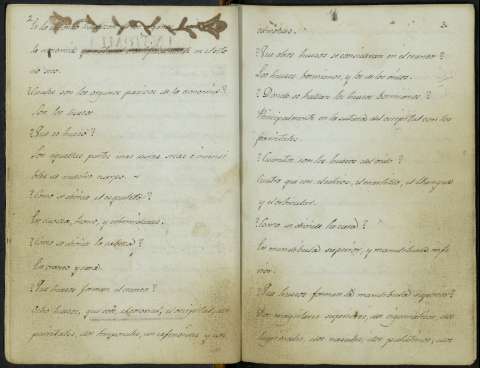 2
no seco.
Quales son los organos pasivos de la armonia?
Son los huesos
Que es hueso?
Son aquellas partes mas duras, secas e insensi
bles de nuestro cuerpo.
Como se divide el esqueleto?
En cabeza, tronco, y extremidades.
Como se divide la cabeza?
En craneo y cara.
Que huesos forman el craneo?
Ocho huesos, que son, el coronal, el occipital, dos
parietales, dos temporales, un esfenoides y un
3
etmoides.
Que otros huesos se consideran en el craneo?
Los huesos bormianos, y los de los oidos.
Donde se hallan los huesos bormianos?
Principalmente en la sutura del occipital con los
parietales.
Cuantos son los huesos del oido?
Cuatro que son, el estrivo,
y el orbicular.
Como se divide la cara?
En mandibula superior, y mandibula infe
rior.
Que huesos forman la mandibula superior?
Dos maxilares superiores, dos zigomaticos, dos
lagrimales, dos nasales, dos palatinos, dos